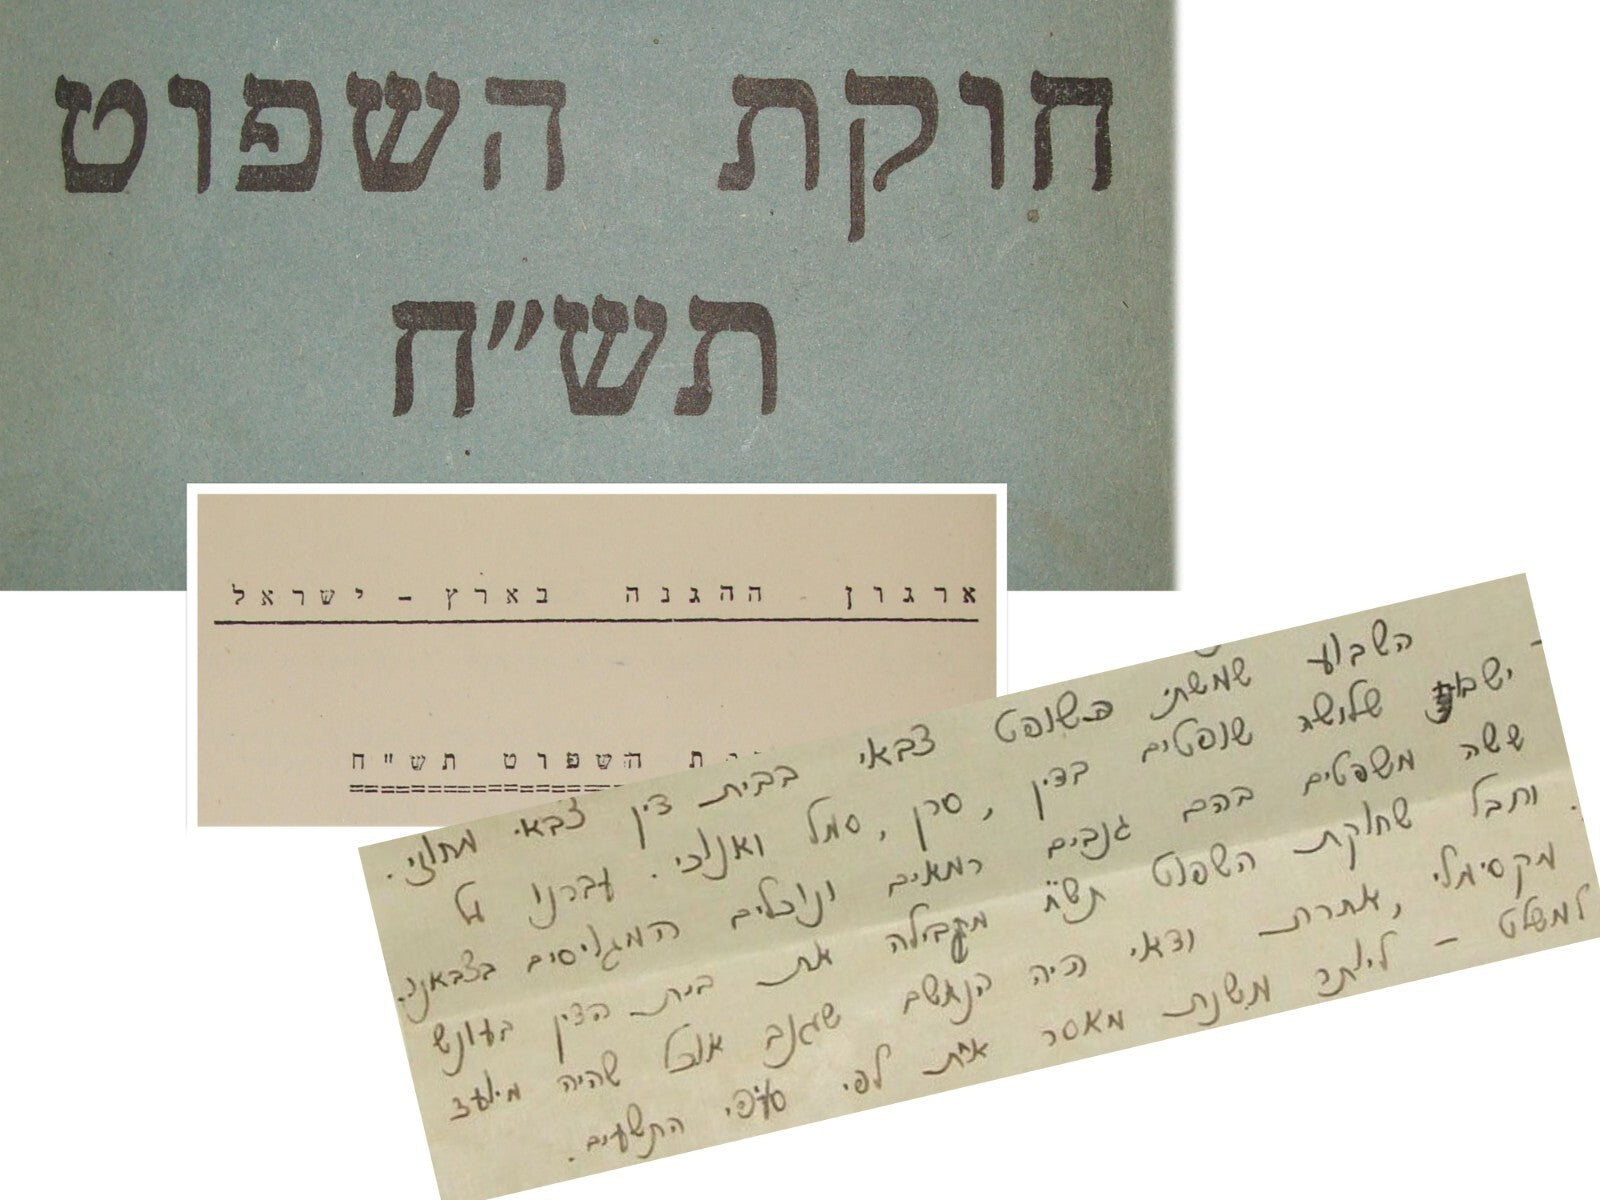 חוקת השפוט
תש״ח
ארגון ההגנה בארץ - ישראל
ת השפוט תש"ח
השבוע שמשתי כשופט צבאי בבית דין צבאי מחוזי.
ישבו שלושה שופטים בדין, סרן, סמל ואנוכי. עברנו על
ששה משפטים בהם גנבים רמאים ונוכלים המגוייסים בצבאנו.
וחבל שחוקת השפוט תש"ח מגבילה את בית הדין בעונש
מקסימלי, אחרת ודאי היה הנאשם שגנב אוכל שהיה מיועד
למשלט - ליותר משנת מאסר אחת לפי סעיפי התשעים.